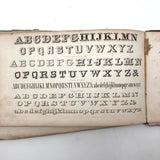 ABCDEFGHIJKLMN
OPQRSTUVWXYZ
ABCDEFGHIJKLMN
OPQRSTUVWXYZ&
abcdefghijklmnopqrstuvwxyz
ABCDEFGHIJKLMN
OPQRSTUVWXYZ&
abcdefghijklmnopqrstuvwxyz